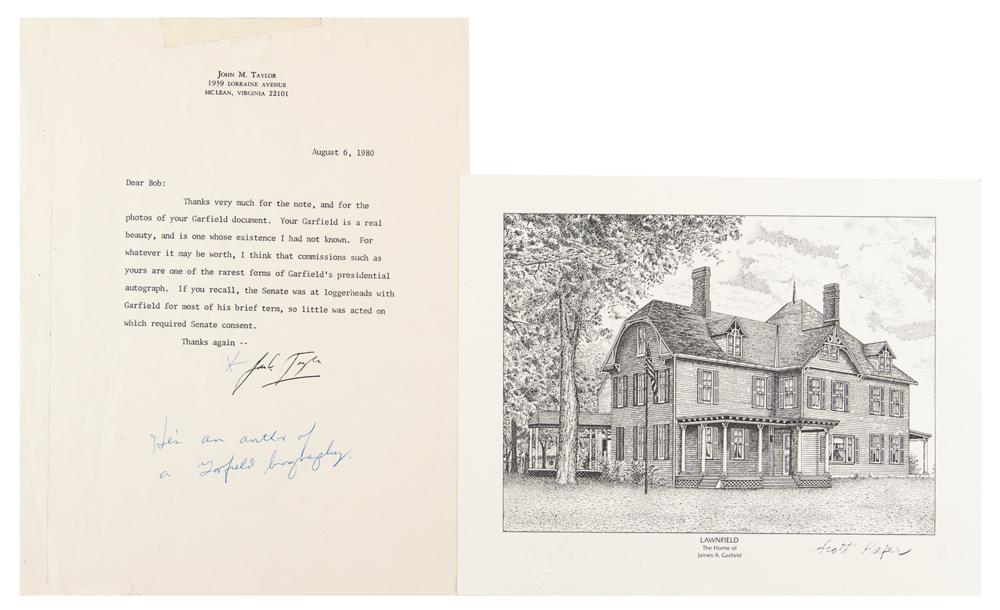 JOHN M. TAYLOR
1939 LORRAINE AVENUE
MC LEAN, VIRGINIA 22101
August 6, 1980
Dear Bob:
Thanks very much for the note, and for the
photos of your Garfield document. Your Garfield is a real
beauty, and is one whose existence I had not known. For
whatever it may be worth, I think that commissions such as
yours are one of the rarest forms of Garfield's presidential
autograph. If you recall, the Senate was at loggerheads with
Garfield for most of his brief term, so little was acted on
which required Senate consent.
Thanks again --
Jack Taylor
He's an author of
a Garfield biography.
LAWNFIELD
The Home of
James A. Garfield
Scott